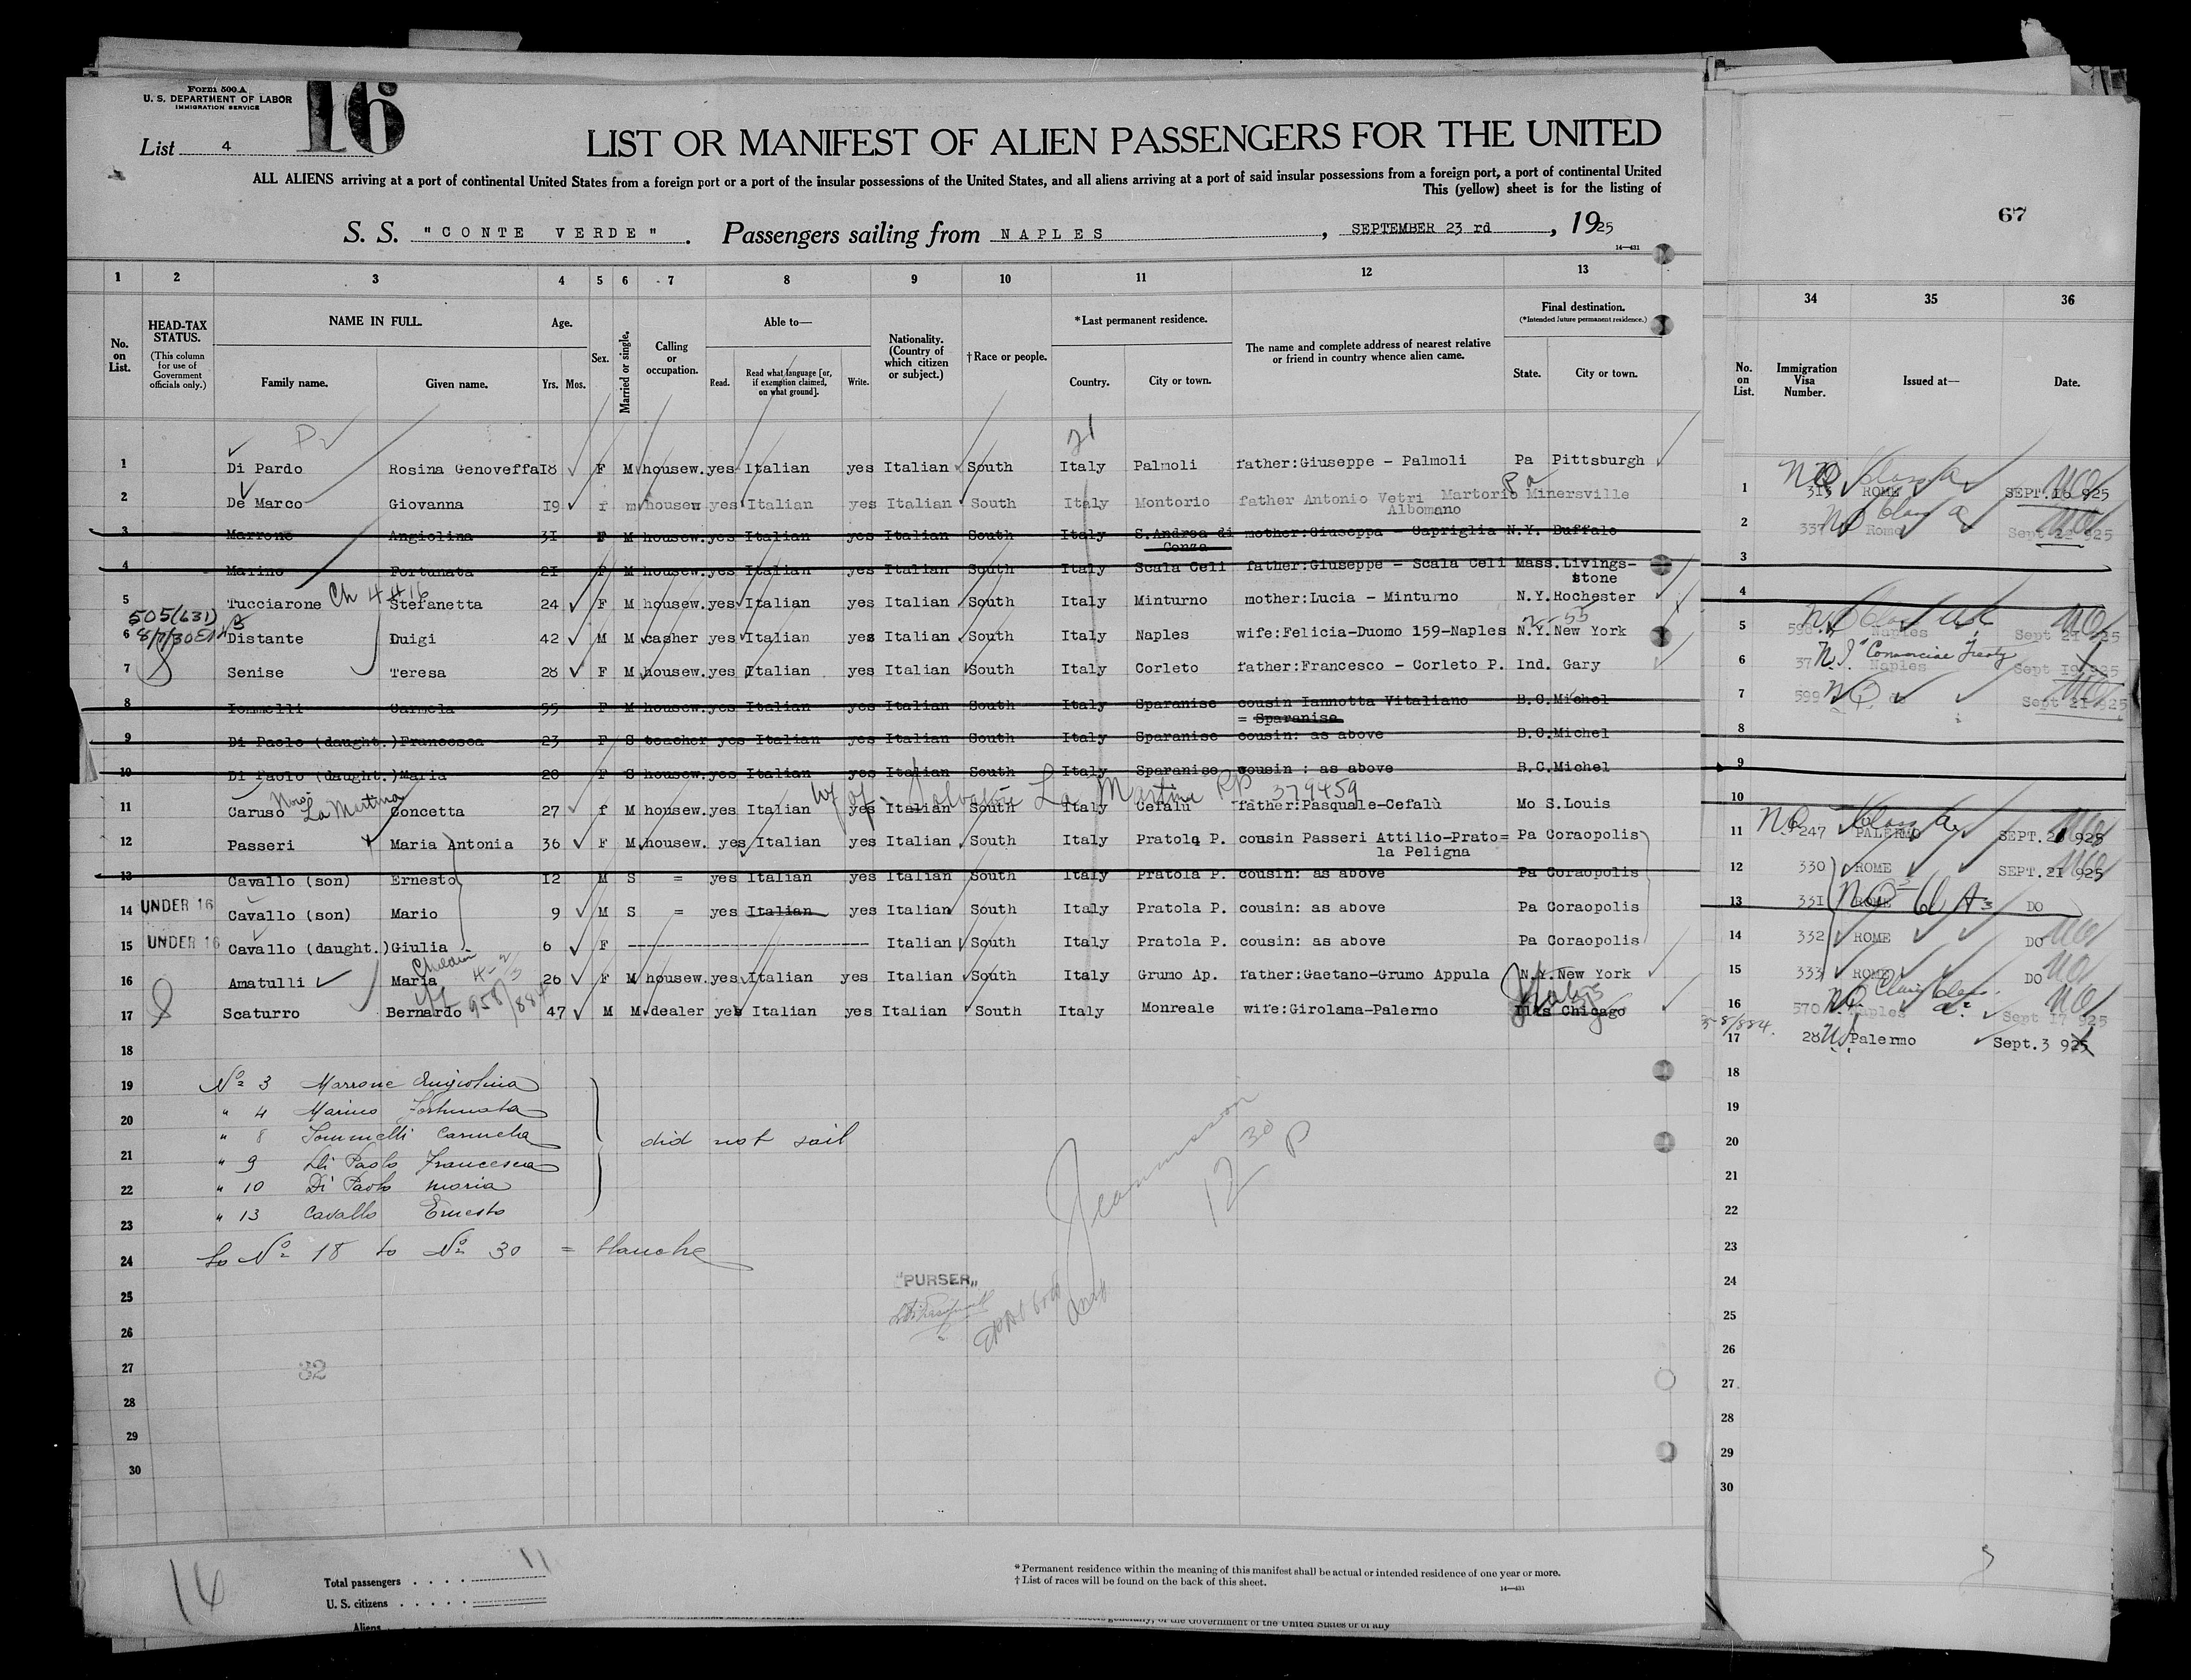 Form 500 A
U. S. DEPARTMENT OF LABOR
IMMIGRATION SERVICE
16
List 4
LIST OR MANIFEST OF ALIEN PASSENGERS FOR THE UNITED
ALL ALIENS arriving at a port of continental United States from a foreign port or a port of the insular possessions of the United States, and all aliens arriving at a port of said insular possessions from a foreign port, a port of continental United
This (yellow) sheet is for the listing of
S. S. "CONTE VERDE". Passengers sailing from NAPLES, SEPTEMBER 23 rd, 1925
14—431
67
1 2 3 4 5 6 7 8 9 10 11 12 13
34 35 36
No. on List.
HEAD-TAX STATUS.
(This column for use of Government officials only.)
NAME IN FULL.
Family name. Given name.
Age.
Yrs. Mos.
Sex.
Married or single.
Calling or occupation.
Able to—
Read. Read what language [or, if exemption claimed, on what ground]. Write.
Nationality. (Country of which citizen or subject.)
†Race or people.
*Last permanent residence.
Country. City or town.
The name and complete address of nearest relative or friend in country whence alien came.
Final destination.
(*Intended future permanent residence.)
State. City or town.
No. on List.
Immigration Visa Number.
Issued at—
Date.
1 Di Pardo Rosina Genoveffa 18 F M housew. yes Italian yes Italian South Italy Palmoli father:Giuseppe - Palmoli Pa Pittsburgh
2 De Marco Giovanna 19 f m housew yes Italian yes Italian South Italy Montorio father Antonio Vetri Martorio Minersville
Pa
Albomano
3 Marrone Angiolina 31 F M housew. yes Italian yes Italian South Italy S.Andrea di Conza mother:Giuseppa - Capriglia N.Y. Buffalo
4 Marino Fortunata 21 F M housew. yes Italian yes Italian South Italy Scala Celi father:Giuseppe - Scala Celi Mass.Livings-
stone
5 Tucciarone Ch 4#16 Stefanetta 24 F M housew. yes Italian yes Italian South Italy Minturno mother:Lucia - Minturno N.Y.Rochester
505(631)
8/7/30
6 Distante Luigi 42 M M casher yes Italian yes Italian South Italy Naples wife:Felicia-Duomo 159-Naples N.Y.New York
7 Senise Teresa 28 F M housew. yes Italian yes Italian South Italy Corleto father:Francesco - Corleto P. Ind. Gary
8 Iommelli Carmela 55 F M housew. yes Italian yes Italian South Italy Sparanise cousin Iannotta Vitaliano B.C.Michel
= Sparanise
9 Di Paolo (daught.) Francesca 23 F S teacher yes Italian yes Italian South Italy Sparanise cousin: as above B.C.Michel
10 Di Paolo (daught.) Maria 20 F S housew. yes Italian yes Italian South Italy Sparanise cousin : as above B.C.Michel
La Martina
La Martina 379459
11 Caruso Concetta 27 f M housew. yes Italian yes Italian South Italy Cefalù father:Pasquale-Cefalù Mo S.Louis
12 Passeri Maria Antonia 36 F M housew. yes Italian yes Italian South Italy Pratola P. cousin Passeri Attilio-Prato= Pa Coraopolis
la Peligna
13 Cavallo (son) Ernesto 12 M S = yes Italian yes Italian South Italy Pratola P. cousin: as above Pa Coraopolis
14 UNDER 16 Cavallo (son) Mario 9 M S = yes Italian yes Italian South Italy Pratola P. cousin: as above Pa Coraopolis
15 UNDER 16 Cavallo (daught.) Giulia 6 F ------------------------ Italian South Italy Pratola P. cousin: as above Pa Coraopolis
16 Amatulli Maria 26 F M housew. yes Italian yes Italian South Italy Grumo Ap. father:Gaetano-Grumo Appula N.Y.New York
17 Scaturro Bernardo 47 M M dealer yes Italian yes Italian South Italy Monreale wife:Girolama-Palermo Ills Chicago
Italy
18
19 No 3 Marrone Angiolina
20 " 4 Marino Fortunata
" 8 Iommelli Carmela
did not sail
21 " 9 Di Paolo Francesca
22 " 10 Di Paolo Maria
23 " 13 Cavallo Ernesto
24 No 18 to No 30 = blanche
"PURSER"
25
26
27
32
28
29
30
12 30 P
1 ROME SEPT. 16 925
2 Rome Sept 22 925
3
4
5 Naples Sept 21 925
6 37 N.I. "Commercial Treaty" Naples Sept 19 925
7 599 do Sept 21 925
8
9
10
11 247 PALERMO SEPT. 925
12 330 ROME SEPT. 21 925
13 331 ROME DO
14 332 ROME DO
15 333 ROME DO
16 570 Naples Sept 17 925
17 28 Palermo Sept. 3 925
18
19
20
21
22
23
24
25
26
27
28
29
30
16
Total passengers . . . . 11
U. S. citizens . . . . .
Aliens
* Permanent residence within the meaning of this manifest shall be actual or intended residence of one year or more.
† List of races will be found on the back of this sheet.
14—431
of the Government of the United States or of any